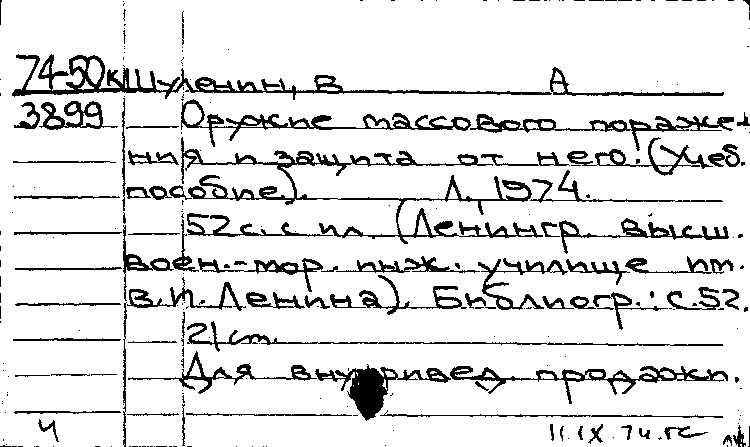 74-50к Шуленин, В А
3899 Оружие массового пораже-
ния и защита от него. (Учеб.
пособие). Л., 1974.
52 с. с ил. (Ленингр. высш.
воен.-мор. инж. училище им.
В.И. Ленина). Библиогр.: с.52.
21 см.
Для внутривед. продажи.
4 11.IX.74.гс